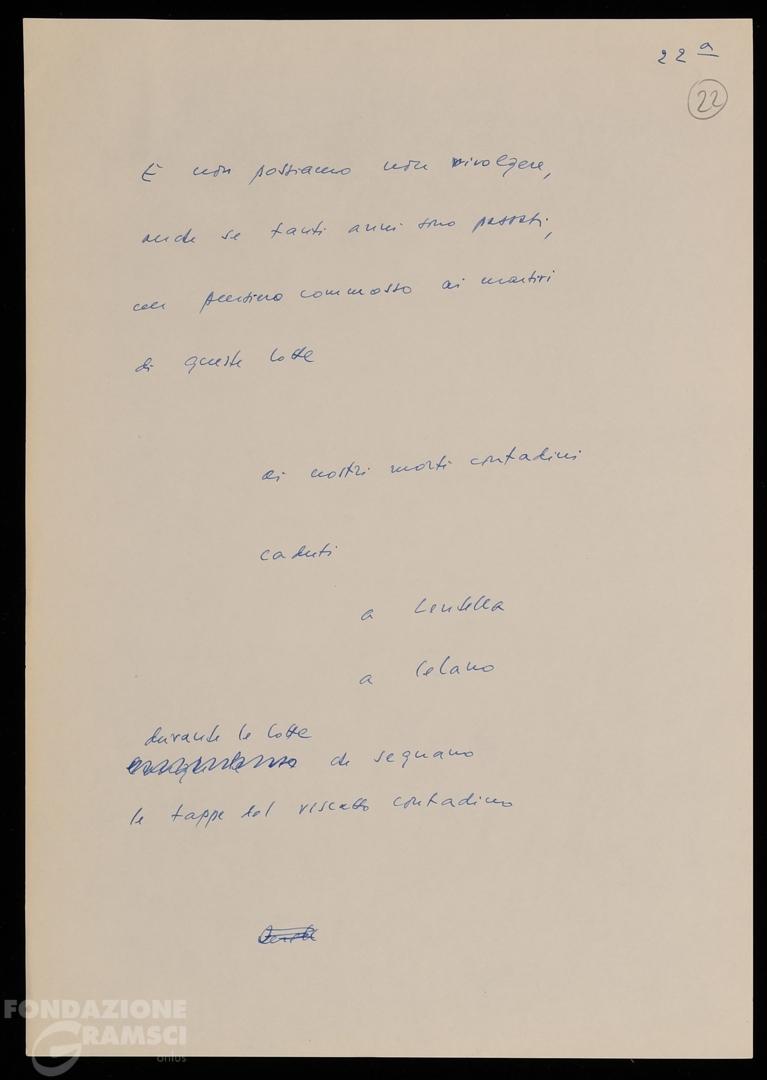 22a
22
E non possiamo non rivolgere,
anche se tanti anni sono passati,
un pensiero commosso ai martiri
di queste lotte
ai nostri morti contadini
caduti
a Lentella
a Celano
durante le lotte
che segnano
le tappe del riscatto contadino
FONDAZIONE
GRAMSCI
onlus